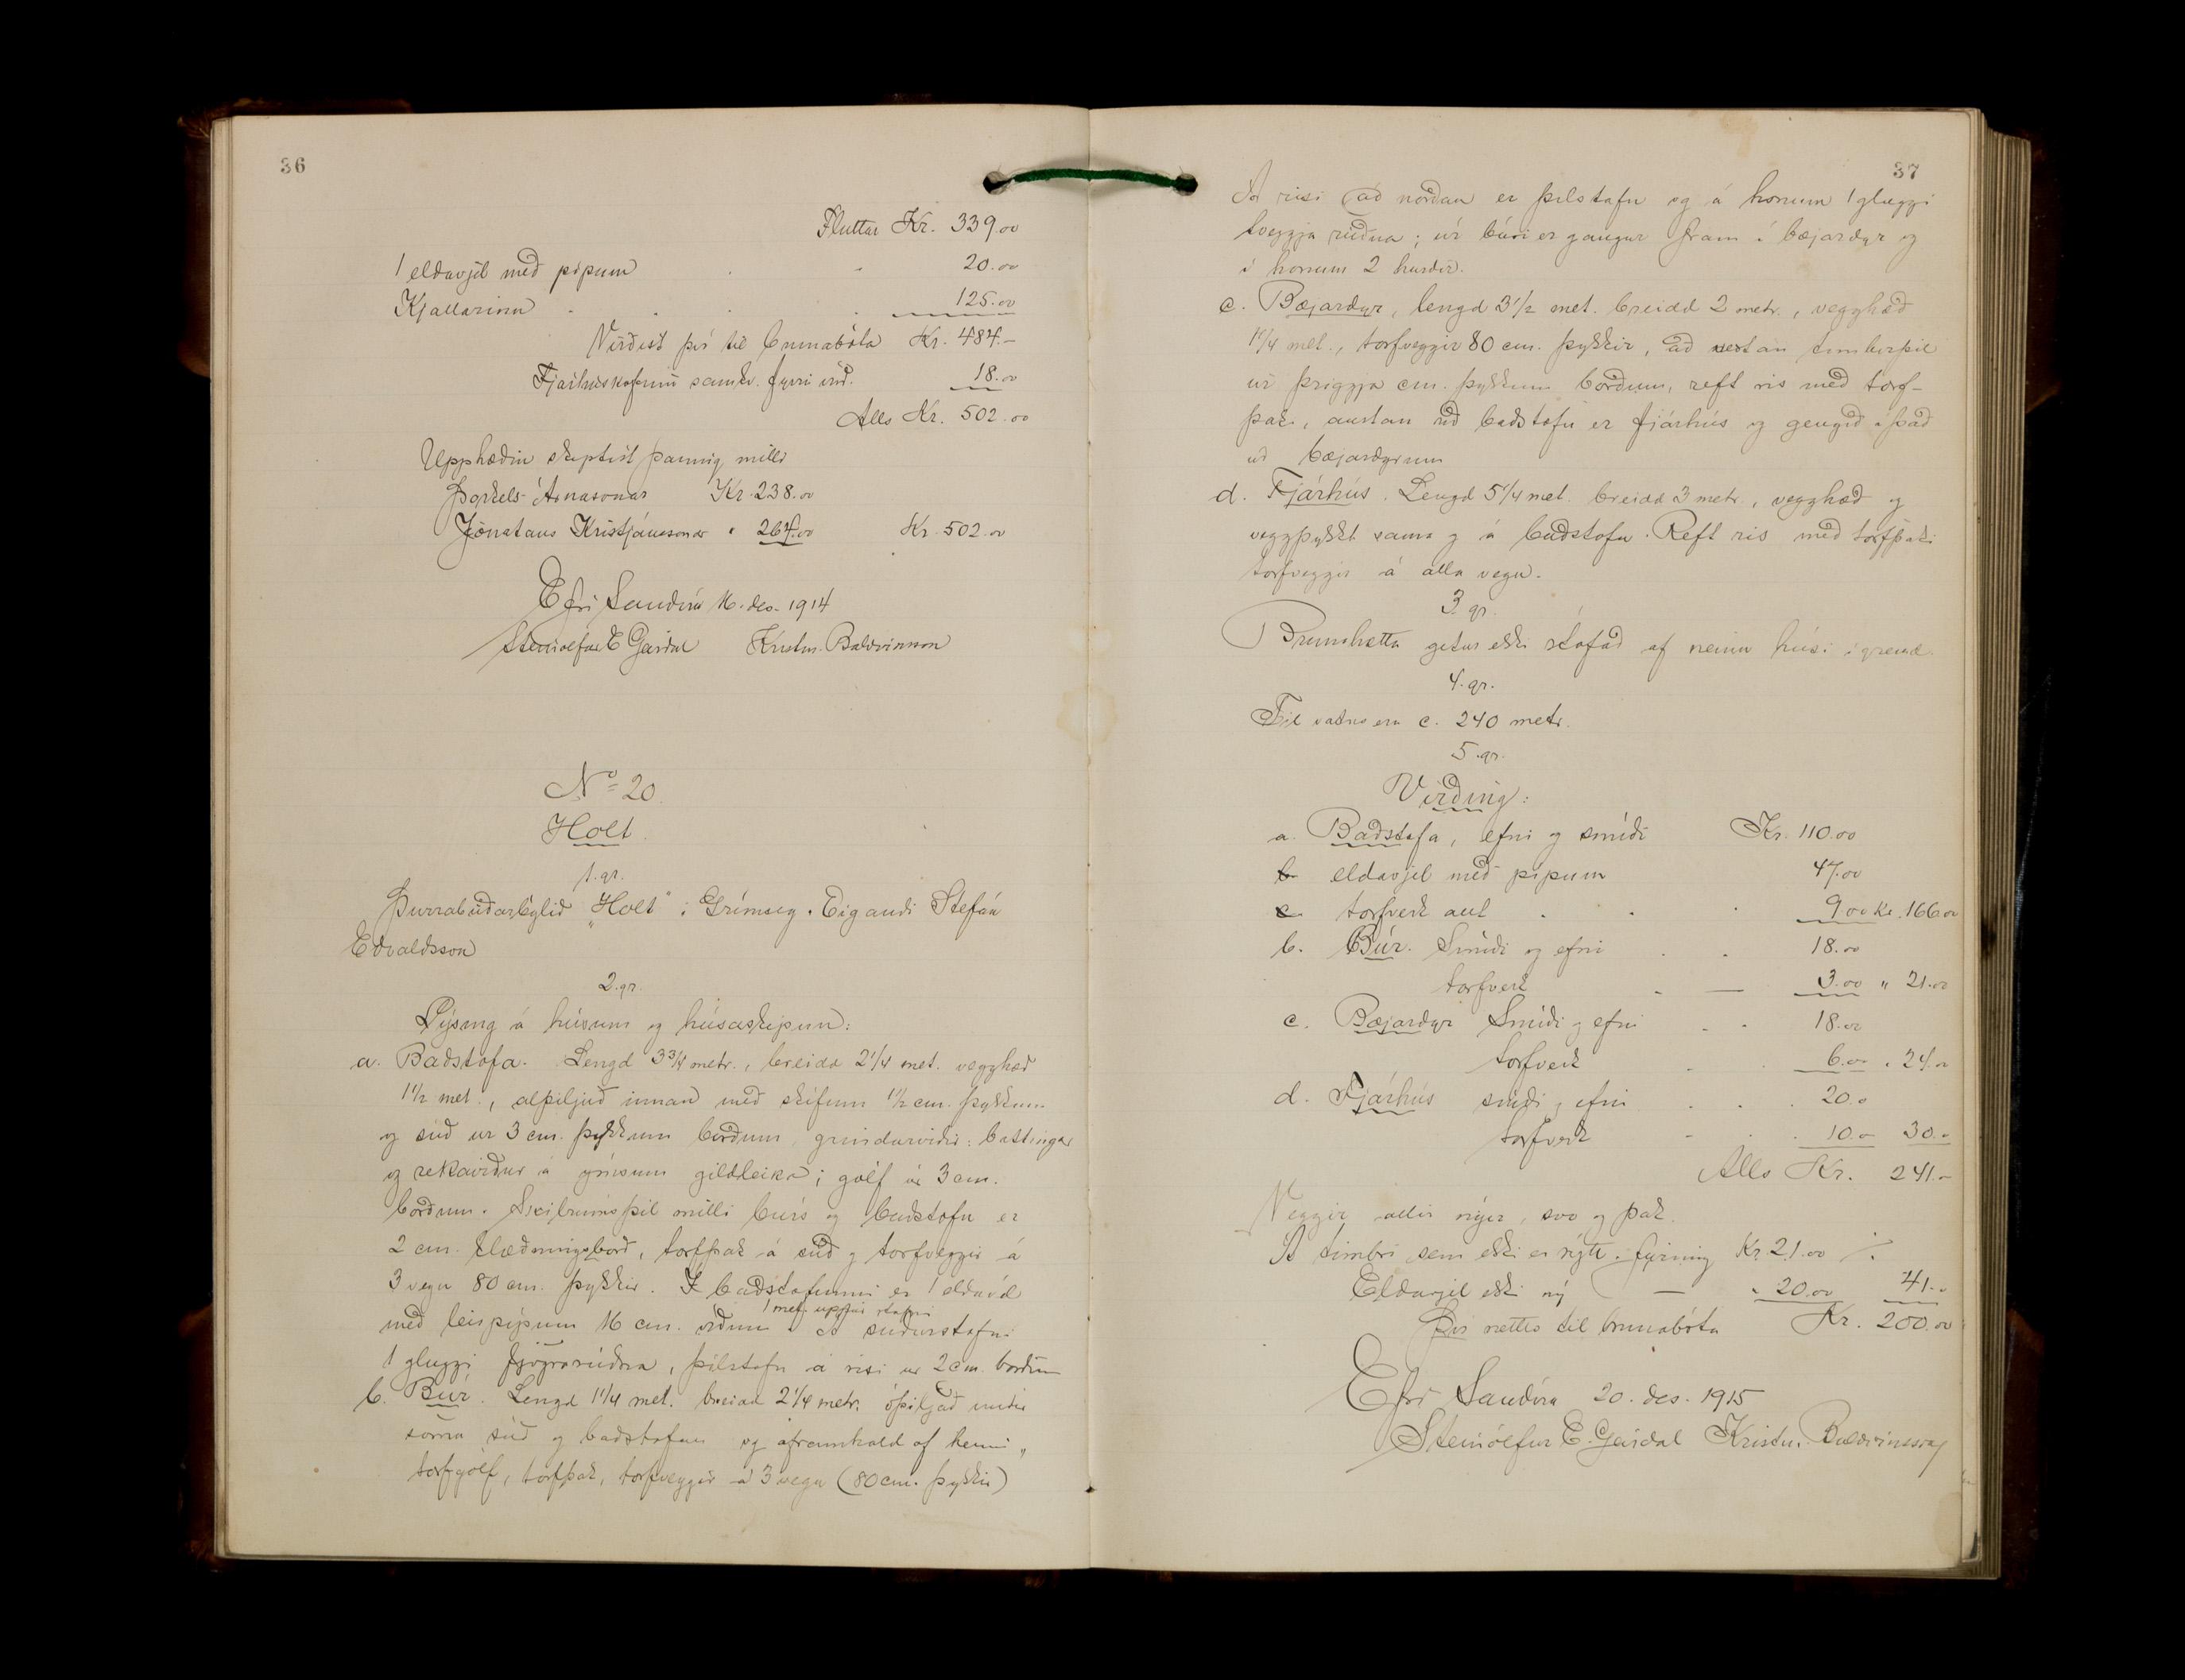 36
Fluttar Kr. 339.00
1 eldavjel með pípum . . 20.00
Kjallarinn . . . . 125.00
Virðist því til brunabóta Kr. 484.-
Fjárhúskofinn samkv. fyrri virð. 18.00
Alls Kr. 502.00
Upphæðin skiptist þannig milli
Þorkels Árnasonar Kr. 238.00
Jónatans Kristjánssonar " 264.00 Kr. 502.00
Efri Sandvík 16. des. 1914
Steinólfur E Geirdal Kristin. Baldvinnson
No 20.
Holt.
1. gr.
Þurrabúðarbýlið "Holt" í Grímsey. Eigandi Stefán
Eðvaldsson
2. gr.
Lýsing á húsum og húsaskipun:
a. Baðstofa. Lengd 3 3/4 metr., breidd 2 1/4 met. vegghæð
1 1/2 met., alþiljuð innan með skífum 1 1/2 cm. þykkum
og súð úr 3 cm. þykkum borðum, grindarviðir: battingar
og rekaviður á ýmsum gildleika; gólf úr 3 cm.
borðum. Skilrúmsþil milli búrs og baðstofu er
2 cm. klæðningsborð, torfþak á súð og torfveggir á
3 vegu 80 cm. þykkir. Í baðstofunni er 1 eldavél
1 met. uppfrá stafni
með leirpípum 16 cm. víðum. Á suðurstafni
1 gluggi fjögrarúðna, þilstafn á risi úr 2 cm. borðum
b. Búr. Lengd 1 1/4 met. breidd 2 1/4 metr. óþiljað undir
sömu súð og baðstofan og áframhald af henni,
torfgólf, torfþak, torfveggir á 3 vegu (80 cm. þykkir)
37
Á risi að norðan er þilstafn og á honum 1 gluggi
tveggja rúðna; úr búri er gangur fram í bæjardyr og
í honum 2 hurðir.
c. Bæjardyr, lengd 3 1/2 met. breidd 2 metr., vegghæð
1 1/4 met., torfveggir 80 cm. þykkir, að vestan timburþil
úr þriggja cm. þykkum borðum, reft ris með torf-
þaki, austan við baðstofu er fjárhús og gengið í það
úr bæjardyrum
d. Fjárhús. Lengd 5 1/4 met. breidd 3 metr., vegghæð og
veggþykkt sama og á baðstofu. Reft ris með torfþaki
torfveggir á alla vegu.
3. gr.
Brunahætta getur ekki stafað af neinu húsi í grend.
4. gr.
Til vatns eru c. 240 metr.
5. gr.
Virðing:
a. Baðstofa, efni og smíði Kr. 110.00
b. eldavjel með pípum 47.00
c. torfverk alt . . . 9 00 Kr. 166 00
b. Búr. Smíði og efni . . 18.00
torfverk . — 3.00 " 21.00
c. Bæjardyr Smíði og efni . . 18.00
torfverk . . 6.00 " 24.00
d. Fjárhús smíði og efni . . . 20.0
torfverk - . . 10.- 30.-
Alls Kr. 241.-
Veggir allir nýir, svo og þak.
Á timbri sem ekki er nýtt. fyrning Kr. 21.00 ./.
Eldavjel ekki ný — " 20.00 41.-
Því netto til brunabóta Kr. 200.00
Efri Sandvík 20. des. 1915
Steinólfur E. Geirdal Kristin. Baldvinsson